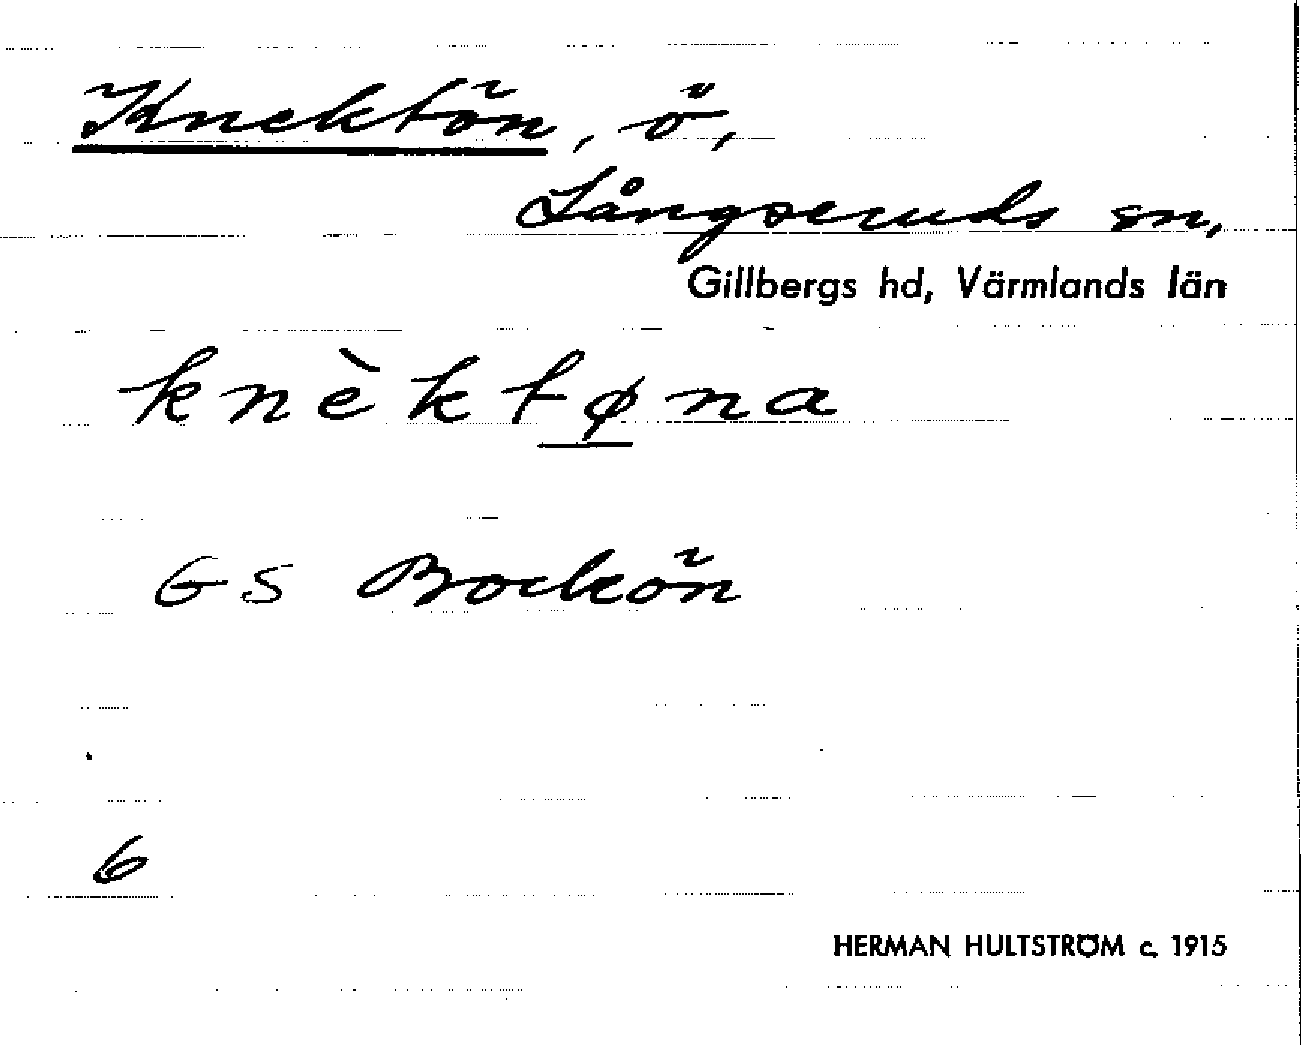 Knektön, ö,
Långseruds sn,
Gillbergs hd, Värmlands län
knèktøna
GS Bockön
6
HERMAN HULTSTRÖM c. 1915